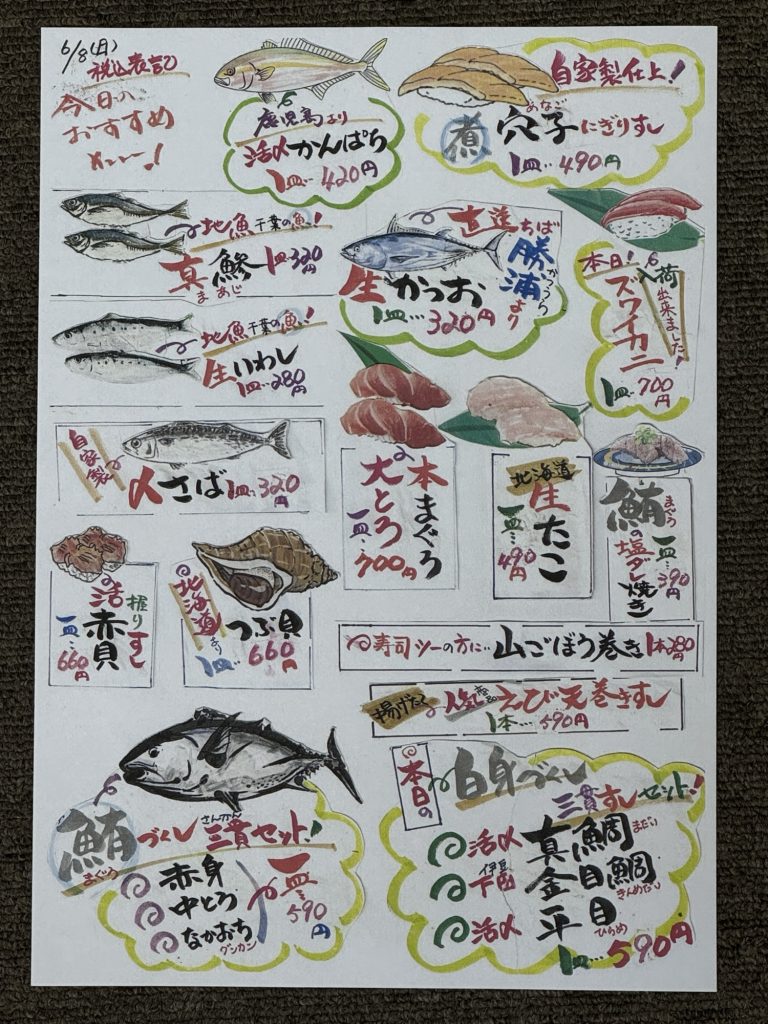 6/8(日)
税込表記
今日の
おすすめ
メニュー!
鹿児島より
活〆かんぱち
1皿…420円
自家製仕上!
煮穴子にぎりすし
あなご
1皿…490円
地魚千葉の魚!
真鯵 1皿320円
まあじ
直送ちば
勝浦より
かつうら
生かつお
1皿…320円
本日!
入荷出来ました!
ズワイカニ
1皿…700円
地魚千葉の魚!
生いわし
1皿…280円
自家製
〆さば 1皿…320円
本まぐろ
大とろ
一皿…700円
北海道
生たこ
一皿…490円
鮪の塩ダレ焼き
まぐろ
一皿…390円
握りすし
活赤貝
一皿…660円
北海道より
つぶ貝
1皿…660円
寿司ツーの方に…山ごぼう巻き 1本280円
揚げたて
人気
えび天巻きすし
1本…590円
鮪づくし三貫セット!
まぐろ
さんかん
赤身
中とろ
なかおち
グンカン
一皿…590円
本日の
白身づくし
三貫すしセット!
活〆 真鯛
まだい
伊豆
下田 金目鯛
きんめだい
活〆 平目
ひらめ
1皿…590円